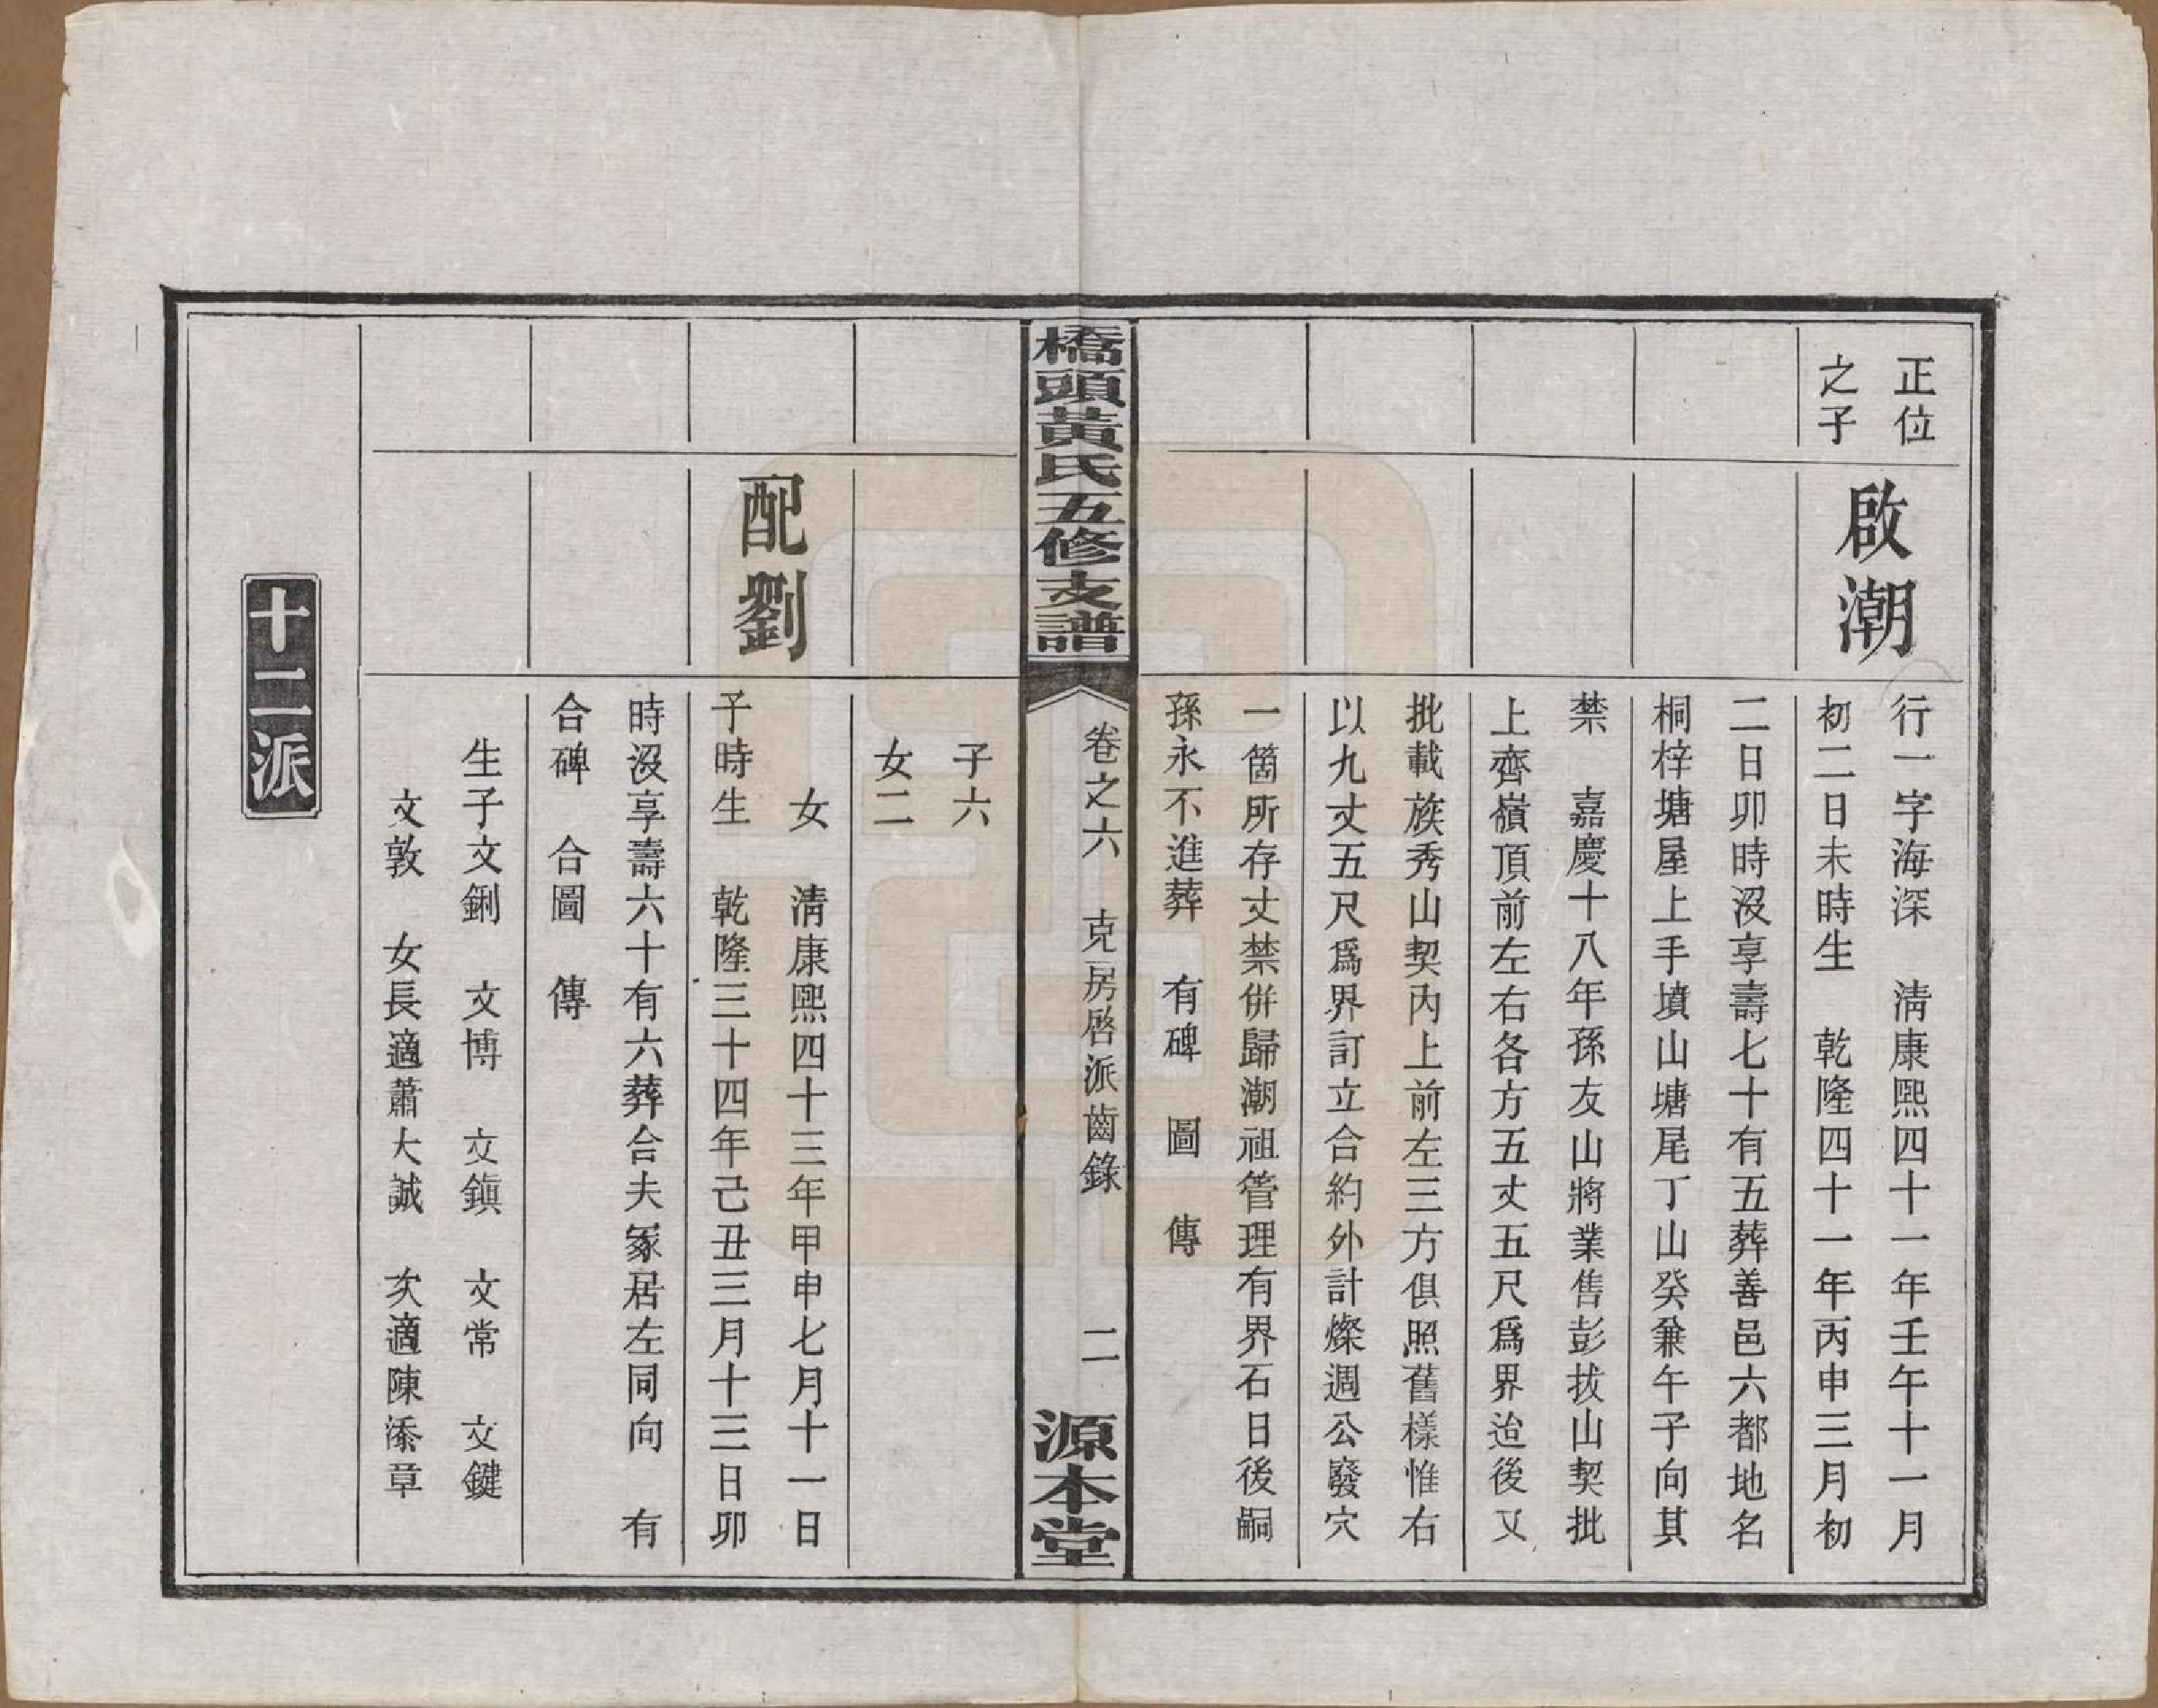 正位
之子
啟潮
行一字海深　清康熙四十一年壬午十一月
初二日未時生　乾隆四十一年丙申三月初
二日卯時沒享壽七十有五葬善邑六都地名
桐梓塘屋上手墳山塘尾丁山癸兼午子向其
禁　嘉慶十八年孫友山將業售彭拔山契批
上齊嶺頂前左右各方五丈五尺爲界迨後又
批載族秀山契內上前左三方俱照舊樣惟右
以九丈五尺爲界訂立合約外計燦週公廢穴
一箇所存丈禁併歸潮祖管理有界石日後嗣
孫永不進葬　有碑　圖　傳
橋頭黃氏五修支譜
卷之六　克房啓派齒錄　二
源本堂
子六
女二
配劉
女　清康熙四十三年甲申七月十一日
子時生　乾隆三十四年己丑三月十三日卯
時沒享壽六十有六葬合夫冢居左同向　有
合碑　合圖　傳
生子文鉶　文博　文鎭　文常　文鍵
文敦　女長適蕭大誠　次適陳添章
十二派